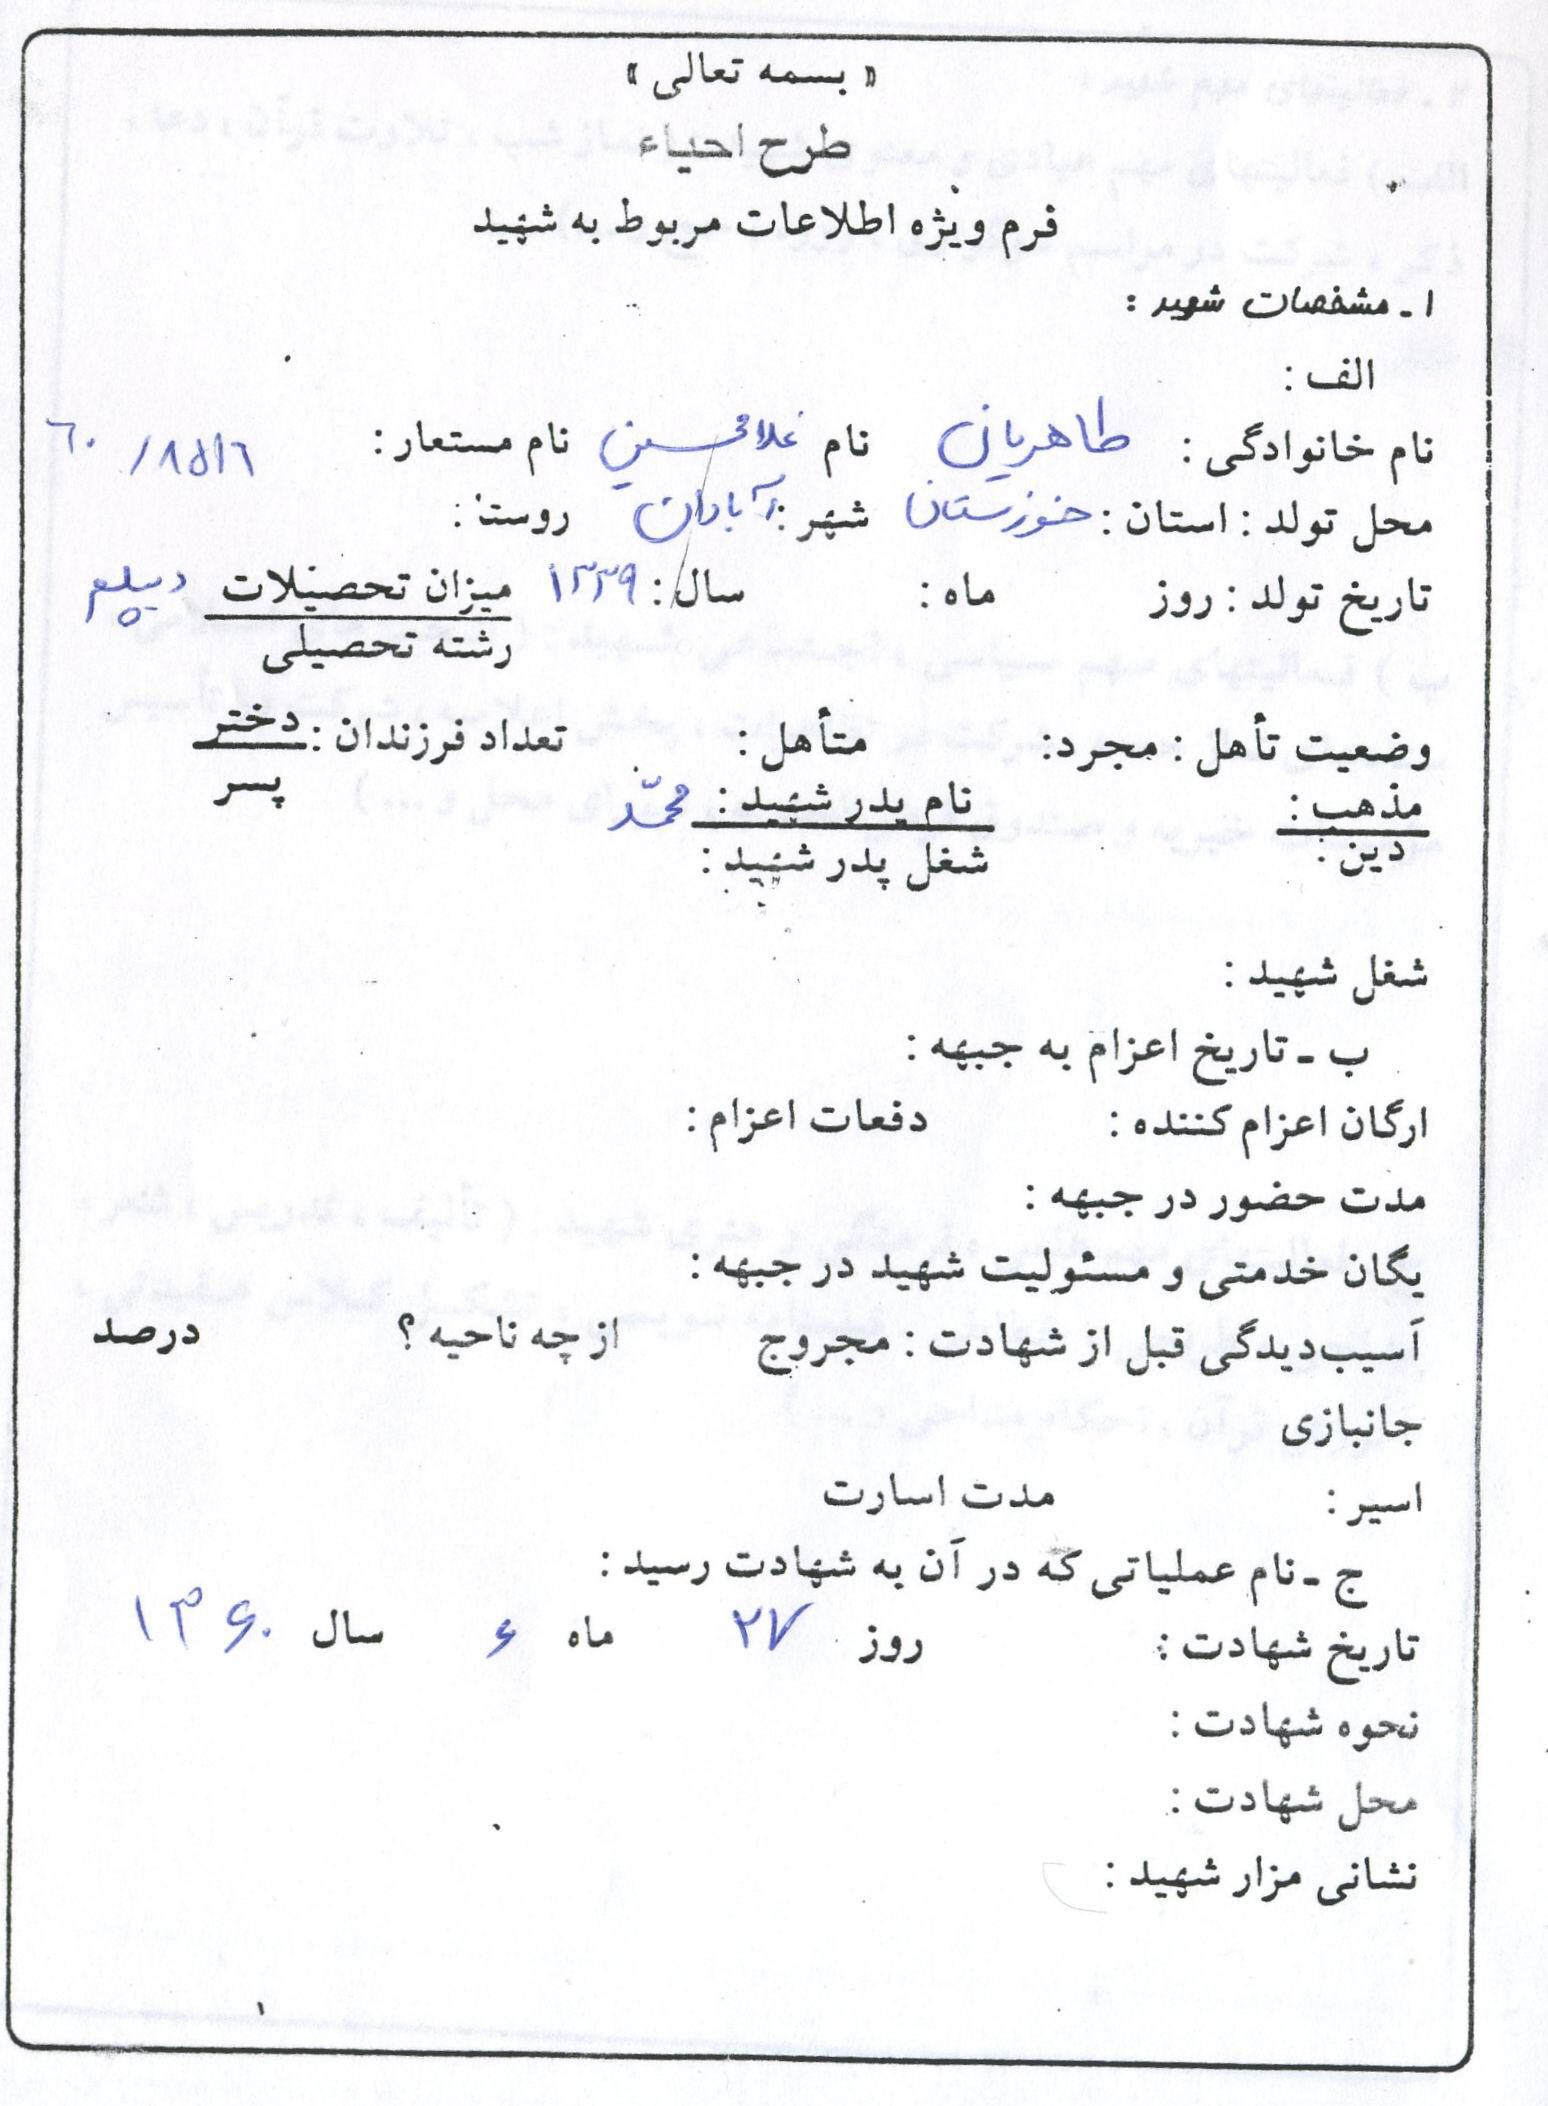 « بسمه تعالی »
طرح احیاء
فرم ویژه اطلاعات مربوط به شهید
۱ ـ مشخصات شهید :
الف :
نام خانوادگی : طاهریان نام غلامحسین نام مستعار :
محل تولد : استان : خوزستان شهر : آبادان روستا :
تاریخ تولد : روز ماه : سال : ۱۳۳۹ میزان تحصیلات دیپلم
رشته تحصیلی
وضعیت تأهل : مجرد: متأهل : تعداد فرزندان : دختر
پسر
مذهب : نام پدر شهید : محمّد
دین : شغل پدر شهید :
شغل شهید :
ب ـ تاریخ اعزام به جبهه :
ارگان اعزام کننده : دفعات اعزام :
مدت حضور در جبهه :
یگان خدمتی و مسئولیت شهید در جبهه :
آسیب‌دیدگی قبل از شهادت : مجروح از چه ناحیه ؟ درصد
جانبازی
اسیر : مدت اسارت
ج ـ نام عملیاتی که در آن به شهادت رسید :
تاریخ شهادت : روز ۲۷ ماه ۶ سال ۱۳۶۰
نحوه شهادت :
محل شهادت :
نشانی مزار شهید :
۱